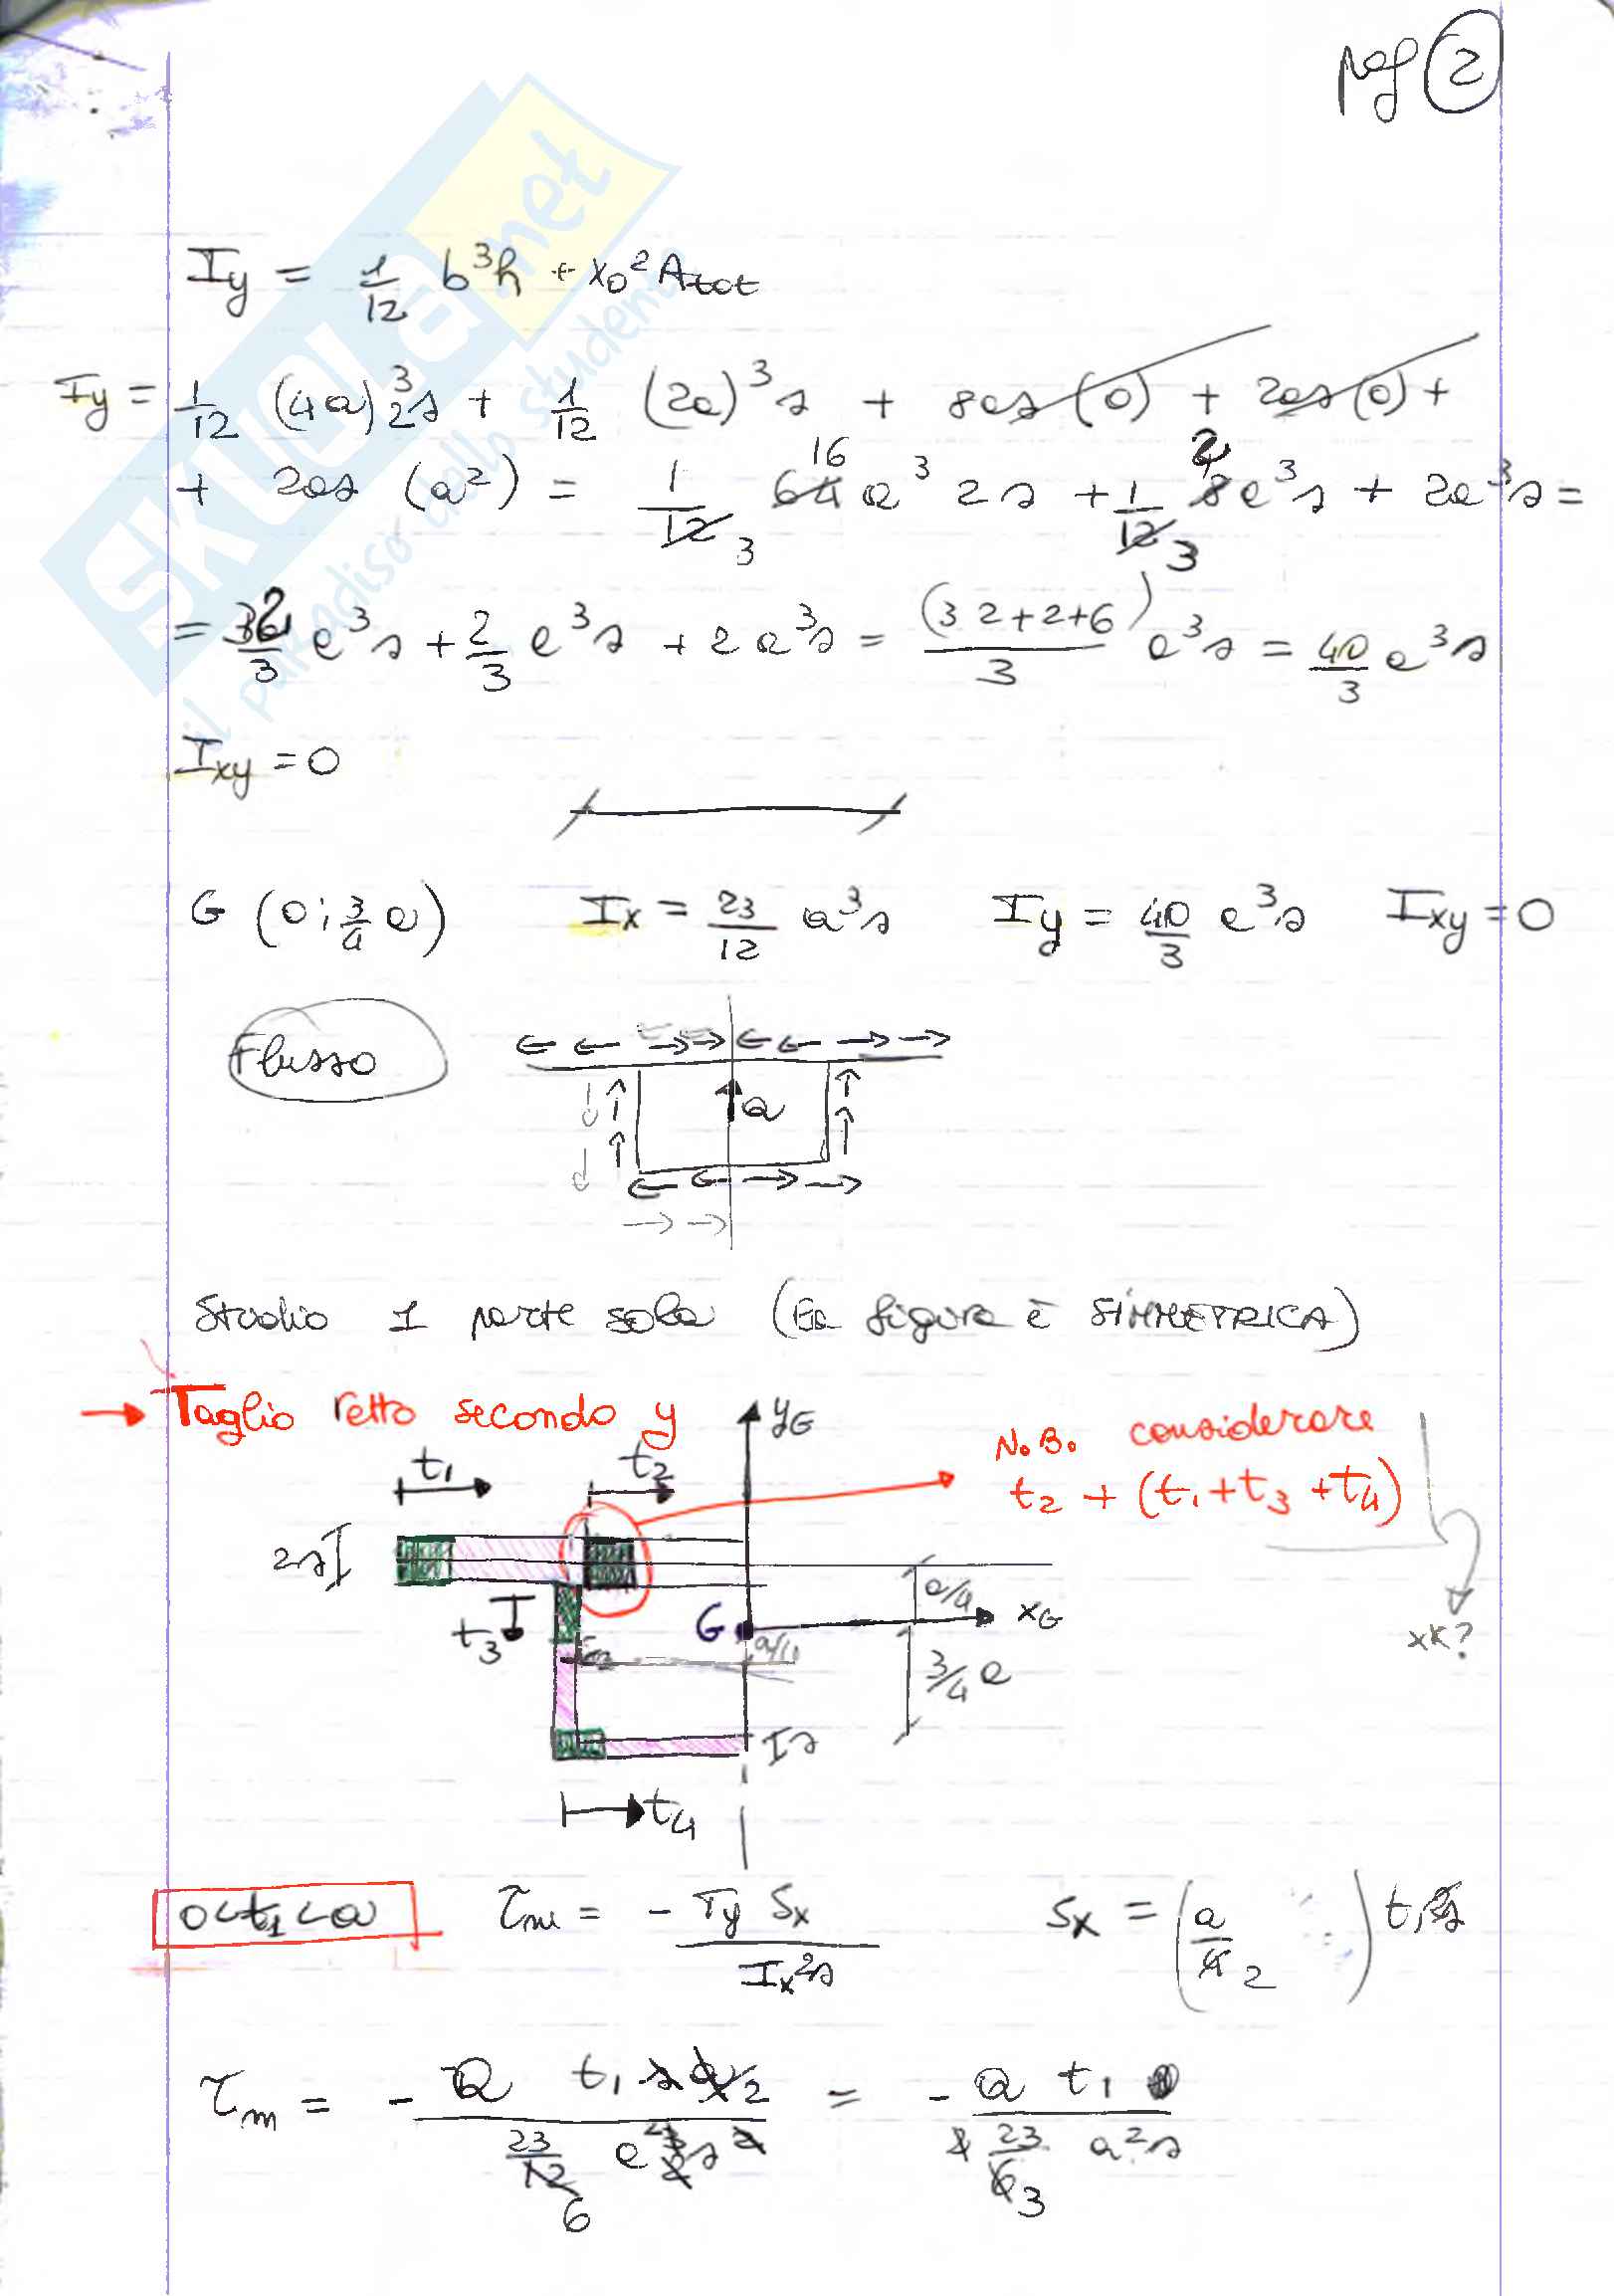 pag 2
SKUOLA.net
il paradiso dello studente
Iy = 1/12 b³h + x₀² Atot
Iy = 1/12 (4a)³ 2s + 1/12 (2a)³ s + 8as (0) + 2as (0) +
+ 2as (a²) = 1/12 3 64 16 a³ 2s + 1/12 3 8 2 a³s + 2a³s =
= 32/3 a³s + 2/3 a³s + 2a³s = (32+2+6)/3 a³s = 40/3 a³s
Ixy = 0
G (0; 3/4 a) Ix = 23/12 a³s Iy = 40/3 a³s Ixy = 0
Flusso
Q
Studio 1 parte sola (la figura è SIMMETRICA)
→ Taglio retto secondo y
yG
N.B. considerare
t₂ + (t₁ + t₃ + t₄)
t₁
t₂
2s
a/4
t₃
G
xG
xk?
3/4 a
s
t₄
0<t₁<a τm = - Ty Sx / Ix 2s Sx = (a/4 2) t₁ 2s
τm = - Q t₁ s a/2 / 23/12 6 a³ 2 s 2 = - Q t₁ / 2 23/6 3 a²s